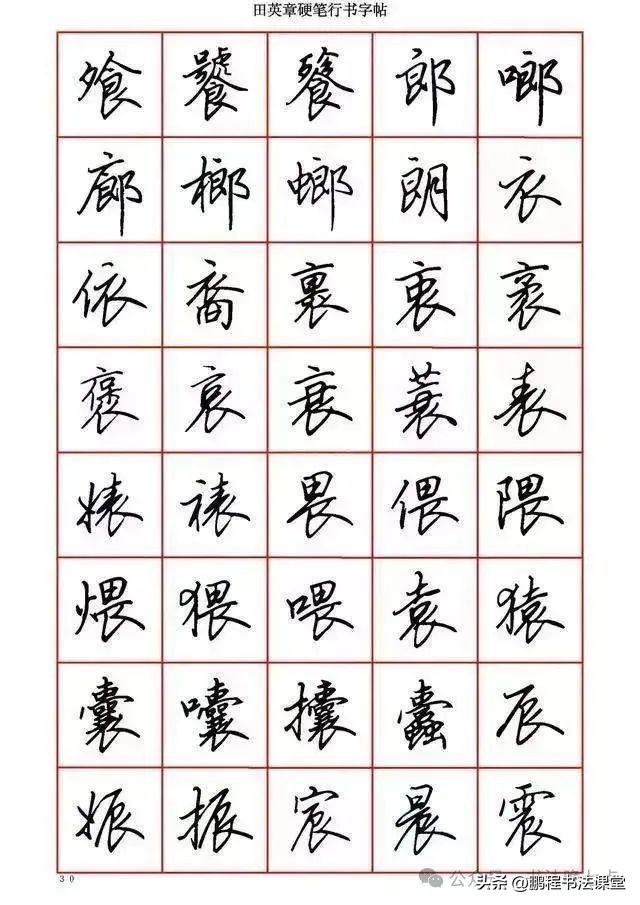 田英章硬笔行书字帖
飧 饕 餮 郎 啷
廊 榔 螂 朗 衣
依 裔 裹 衷
褒 哀 衰 蓑 表
婊 裱 畏 偎 隈
煨 猥 喂 袁 猿
囊 囔 攮 蠹 辰
娠 振 宸 晨 震
30
头条 @鹏程书法课堂